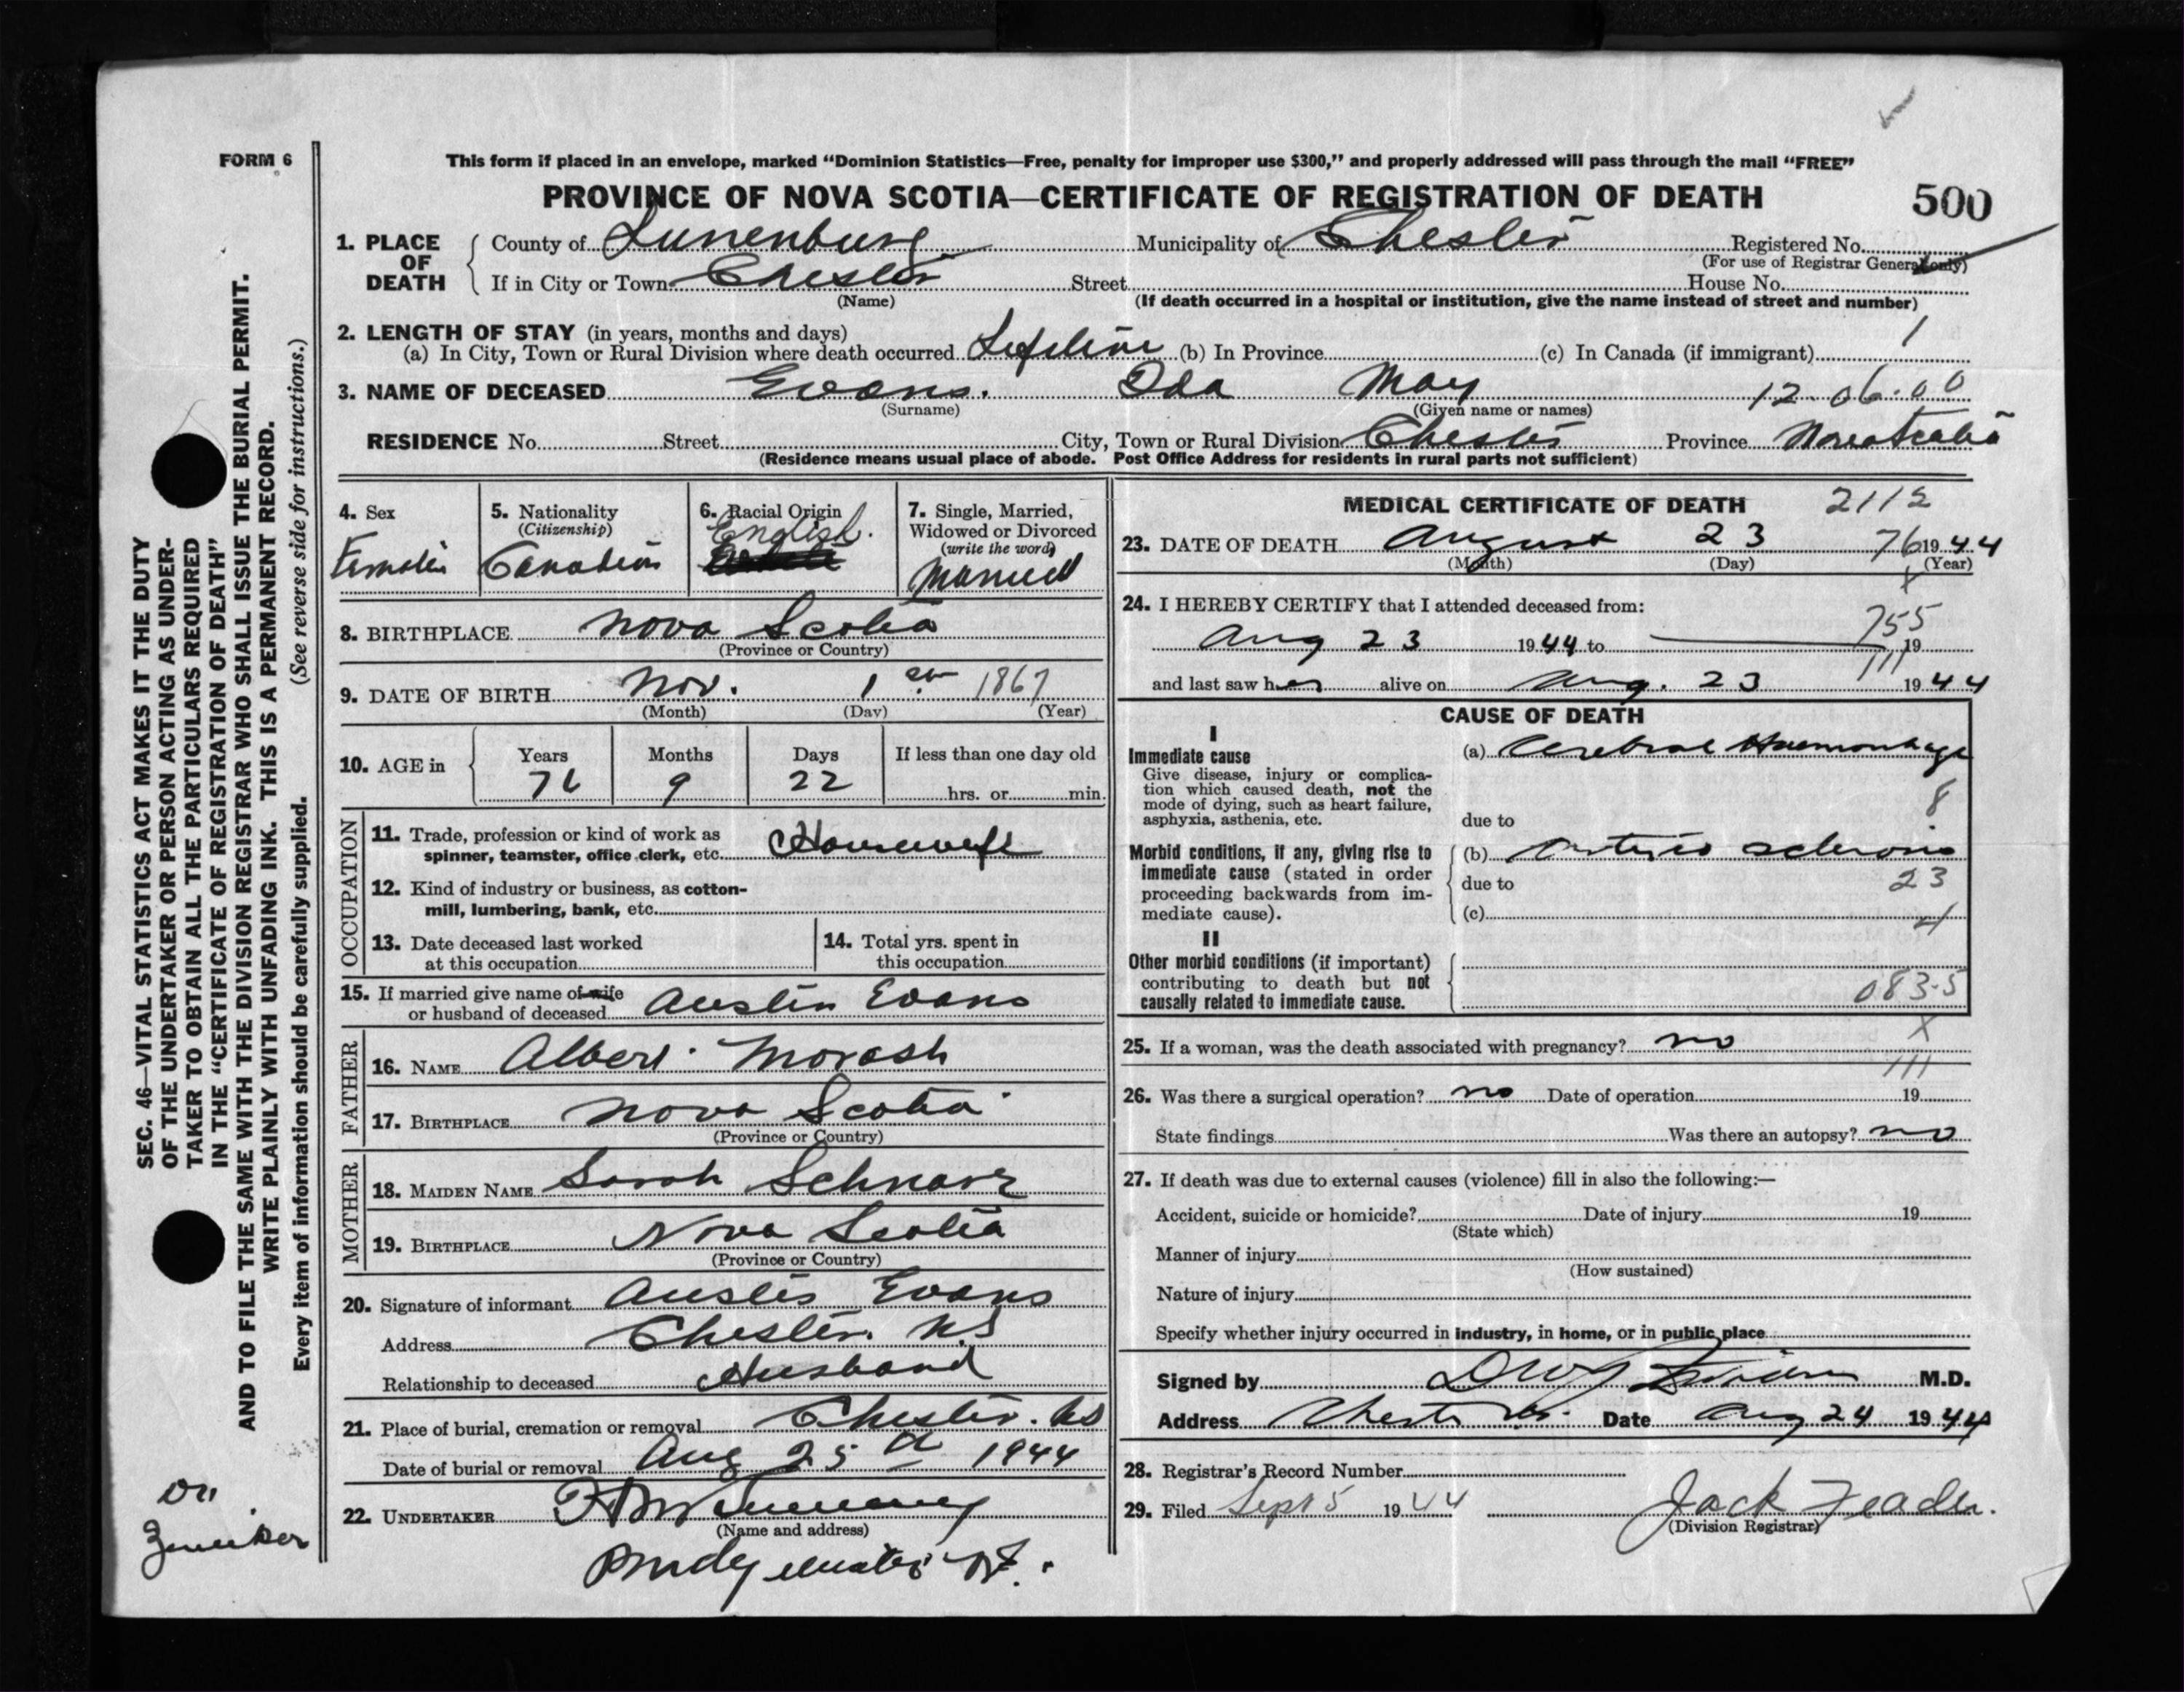 FORM 6
This form if placed in an envelope, marked “Dominion Statistics—Free, penalty for improper use $300,” and properly addressed will pass through the mail “FREE”
PROVINCE OF NOVA SCOTIA—CERTIFICATE OF REGISTRATION OF DEATH
500
1. PLACE OF DEATH
County of Lunenburg Municipality of Chester Registered No.
(For use of Registrar General only)
If in City or Town Chester Street House No.
(Name) (If death occurred in a hospital or institution, give the name instead of street and number)
2. LENGTH OF STAY (in years, months and days) 1
(a) In City, Town or Rural Division where death occurred Lifetime (b) In Province (c) In Canada (if immigrant)
3. NAME OF DECEASED Evans. Ida May 12.06.00
(Surname) (Given name or names)
RESIDENCE No. Street City, Town or Rural Division Chester Province Nova Scotia
(Residence means usual place of abode. Post Office Address for residents in rural parts not sufficient)
4. Sex
Female
5. Nationality
(Citizenship)
Canadian
6. Racial Origin
English.
7. Single, Married,
Widowed or Divorced
(write the word)
Married
8. BIRTHPLACE Nova Scotia
(Province or Country)
9. DATE OF BIRTH Nov. 1 1867
(Month) (Day) (Year)
10. AGE in
Years Months Days If less than one day old
76 9 22 hrs. or min.
OCCUPATION
11. Trade, profession or kind of work as
spinner, teamster, office clerk, etc. Housewife
12. Kind of industry or business, as cotton-
mill, lumbering, bank, etc.
13. Date deceased last worked
at this occupation
14. Total yrs. spent in
this occupation
15. If married give name of wife
or husband of deceased Austin Evans
FATHER
16. NAME Albert Morash
17. BIRTHPLACE Nova Scotia
(Province or Country)
MOTHER
18. MAIDEN NAME Sarah Schnare
19. BIRTHPLACE Nova Scotia
(Province or Country)
20. Signature of informant Austin Evans
Address Chester. N.S
Relationship to deceased Husband
21. Place of burial, cremation or removal Chester. NS
Date of burial or removal Aug 25th 1944
22. UNDERTAKER
(Name and address)
MEDICAL CERTIFICATE OF DEATH 2112
23. DATE OF DEATH August 23 76 1944
(Month) (Day) (Year)
x
24. I HEREBY CERTIFY that I attended deceased from:
755
Aug 23 1944 to 19
111
and last saw her alive on Aug. 23 1944
CAUSE OF DEATH
I
Immediate cause
Give disease, injury or complica-
tion which caused death, not the
mode of dying, such as heart failure,
asphyxia, asthenia, etc.
(a) Cerebral Haemorrhage
8
due to
Morbid conditions, if any, giving rise to
immediate cause (stated in order
proceeding backwards from im-
mediate cause).
(b) Arterio sclerosis
due to 23
(c) 4
II
Other morbid conditions (if important)
contributing to death but not
causally related to immediate cause.
083-5
x
25. If a woman, was the death associated with pregnancy? no
111
26. Was there a surgical operation? no Date of operation 19
State findings Was there an autopsy? no
27. If death was due to external causes (violence) fill in also the following:—
Accident, suicide or homicide? Date of injury 19
(State which)
Manner of injury
(How sustained)
Nature of injury
Specify whether injury occurred in industry, in home, or in public place
Signed by M.D.
Address Chester N.S. Date Aug 24 1944
28. Registrar’s Record Number
29. Filed Sept 5 1944 Jack
(Division Registrar)
SEC. 46—VITAL STATISTICS ACT MAKES IT THE DUTY
OF THE UNDERTAKER OR PERSON ACTING AS UNDER-
TAKER TO OBTAIN ALL THE PARTICULARS REQUIRED
IN THE “CERTIFICATE OF REGISTRATION OF DEATH”
AND TO FILE THE SAME WITH THE DIVISION REGISTRAR WHO SHALL ISSUE THE BURIAL PERMIT.
WRITE PLAINLY WITH UNFADING INK. THIS IS A PERMANENT RECORD.
Every item of information should be carefully supplied. (See reverse side for instructions.)